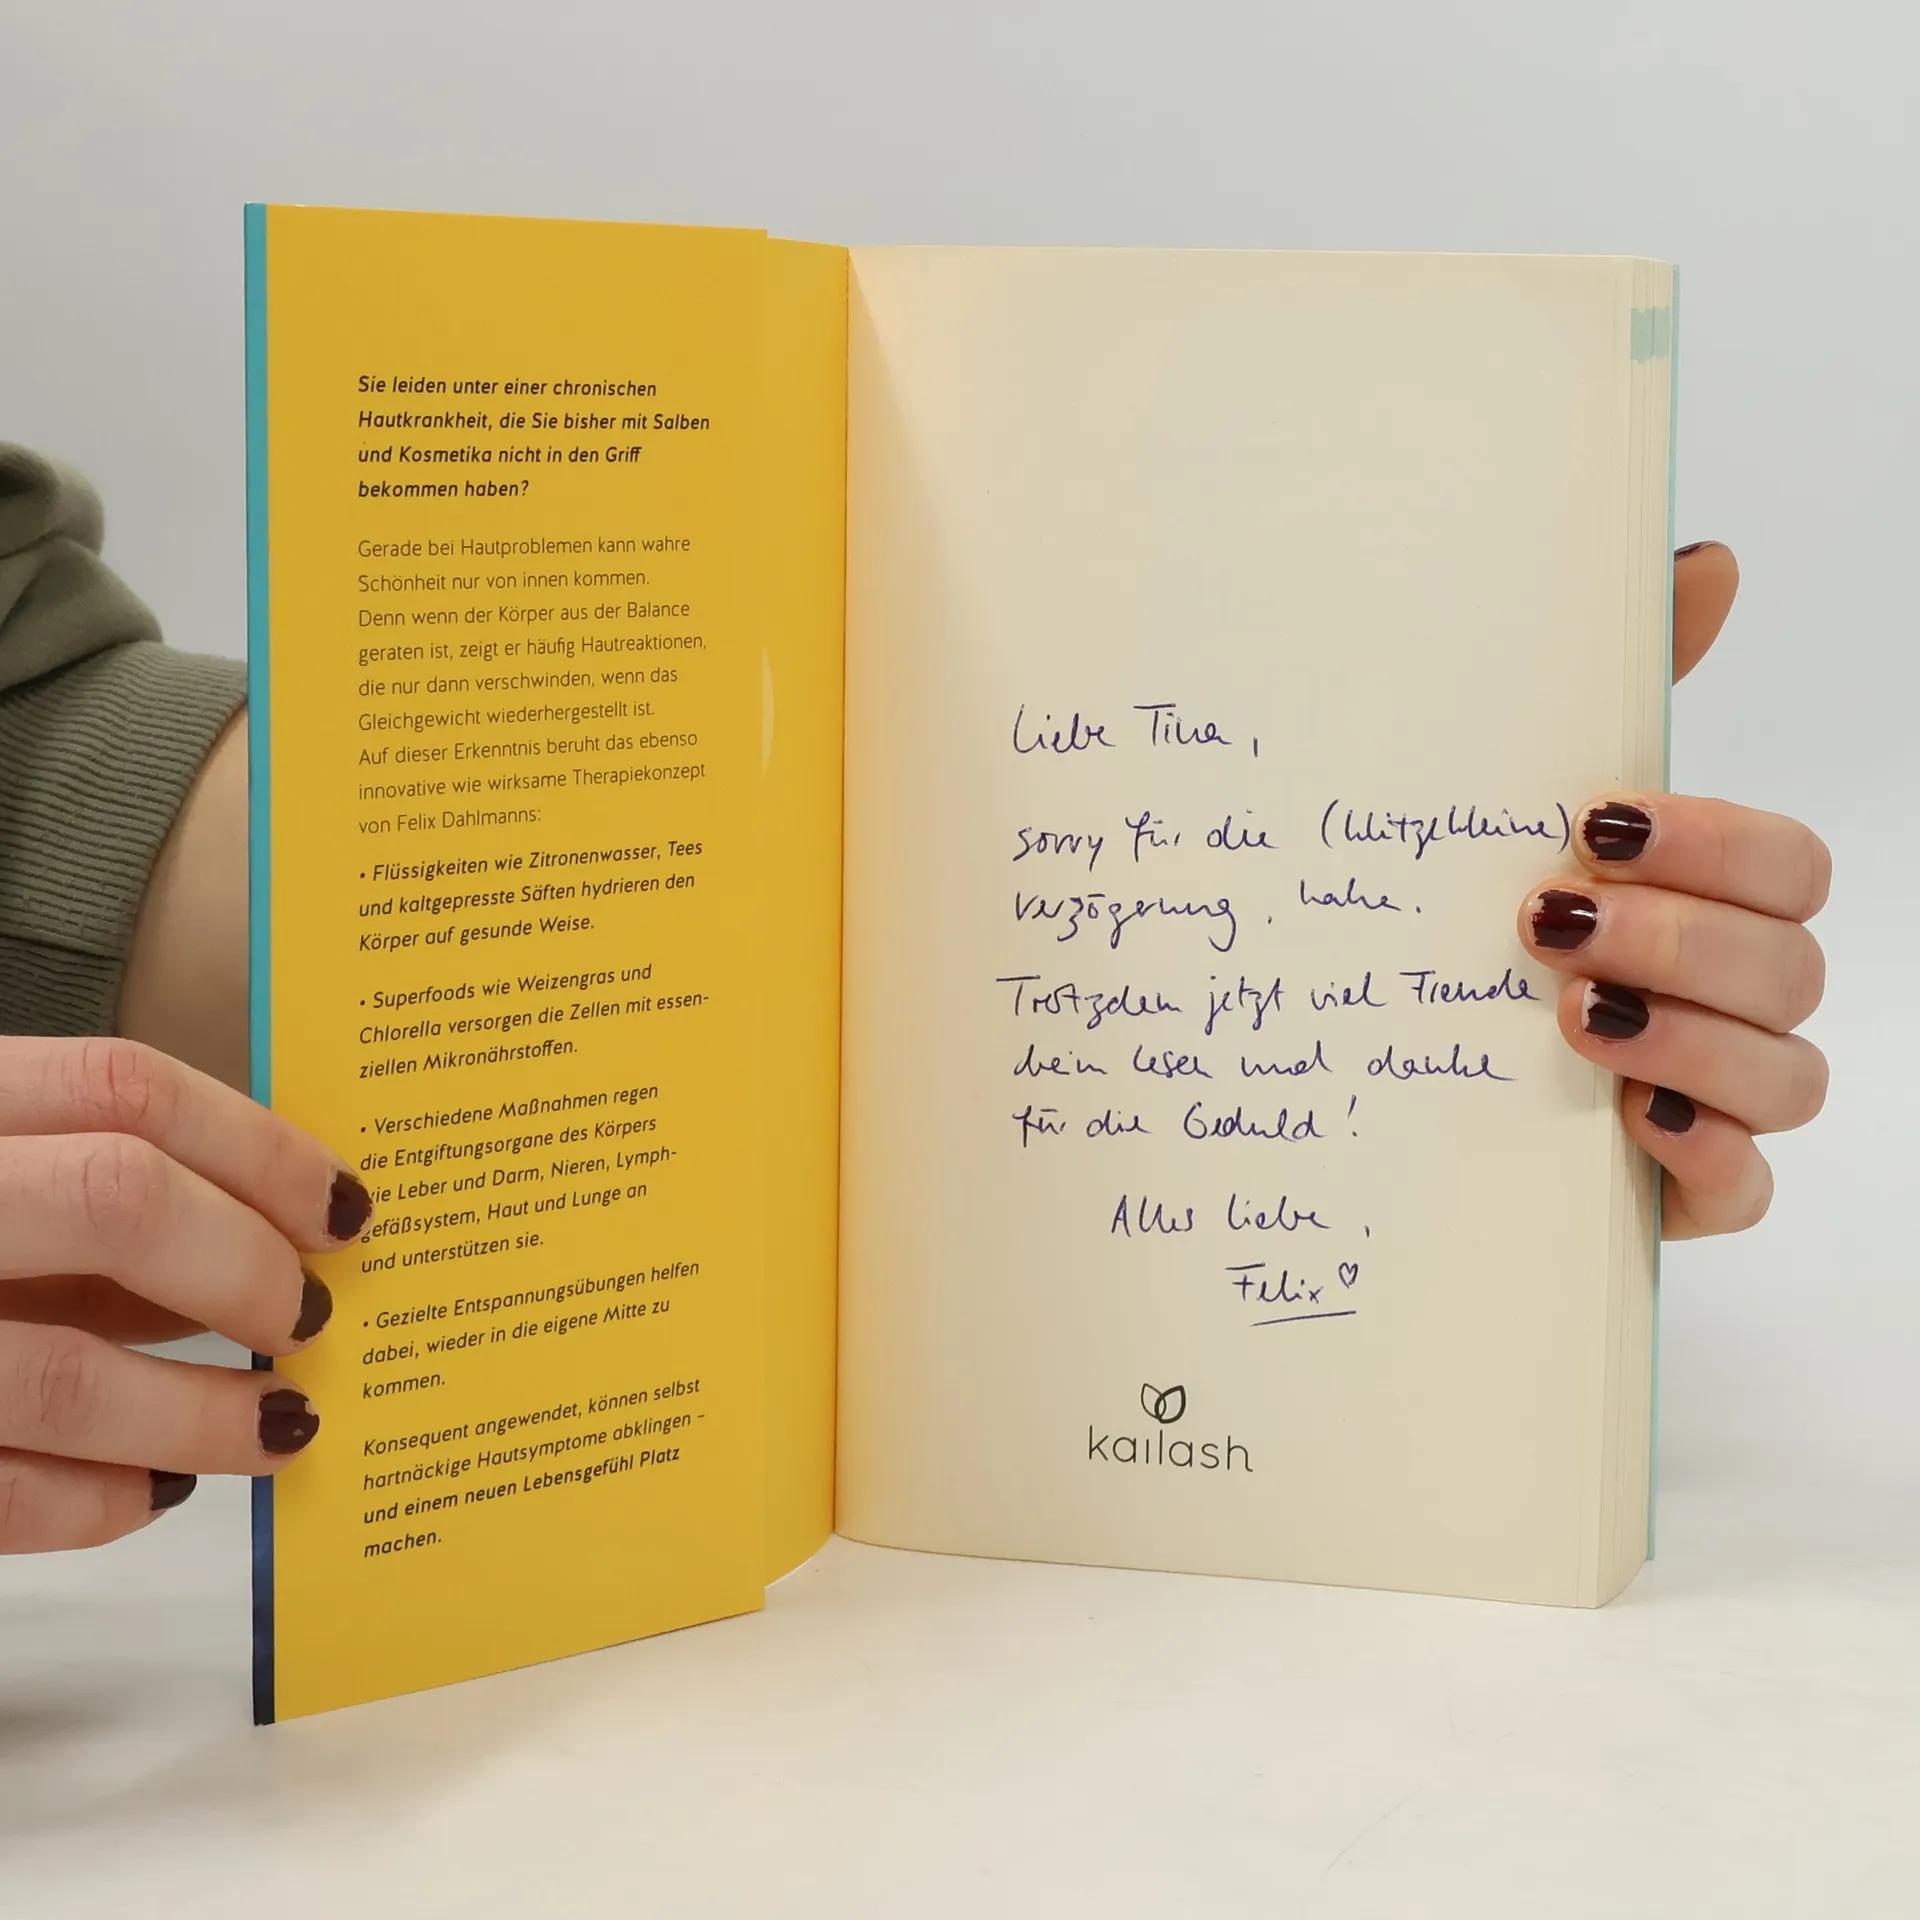 Sie leiden unter einer chronischen
Hautkrankheit, die Sie bisher mit Salben
und Kosmetika nicht in den Griff
bekommen haben?
Gerade bei Hautproblemen kann wahre
Schönheit nur von innen kommen.
Denn wenn der Körper aus der Balance
geraten ist, zeigt er häufig Hautreaktionen,
die nur dann verschwinden, wenn das
Gleichgewicht wiederhergestellt ist.
Auf dieser Erkenntnis beruht das ebenso
innovative wie wirksame Therapiekonzept
von Felix Dahlmanns:
• Flüssigkeiten wie Zitronenwasser, Tees
und kaltgepresste Säften hydrieren den
Körper auf gesunde Weise.
• Superfoods wie Weizengras und
Chlorella versorgen die Zellen mit essen-
ziellen Mikronährstoffen.
• Verschiedene Maßnahmen regen
die Entgiftungsorgane des Körpers
wie Leber und Darm, Nieren, Lymph-
gefäßsystem, Haut und Lunge an
und unterstützen sie.
• Gezielte Entspannungsübungen helfen
dabei, wieder in die eigene Mitte zu
kommen.
Konsequent angewendet, können selbst
hartnäckige Hautsymptome abklingen –
und einem neuen Lebensgefühl Platz
machen.
Liebe Tina,
sorry für die (klitzekleine)
Verzögerung, hehe.
Trotzdem jetzt viel Freude
beim Lesen und danke
für die Geduld!
Alles Liebe,
Felix ♡
kailash